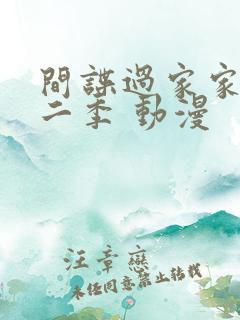 間諜過家家
二季 動漫
汪章戀
未经同意禁止转载